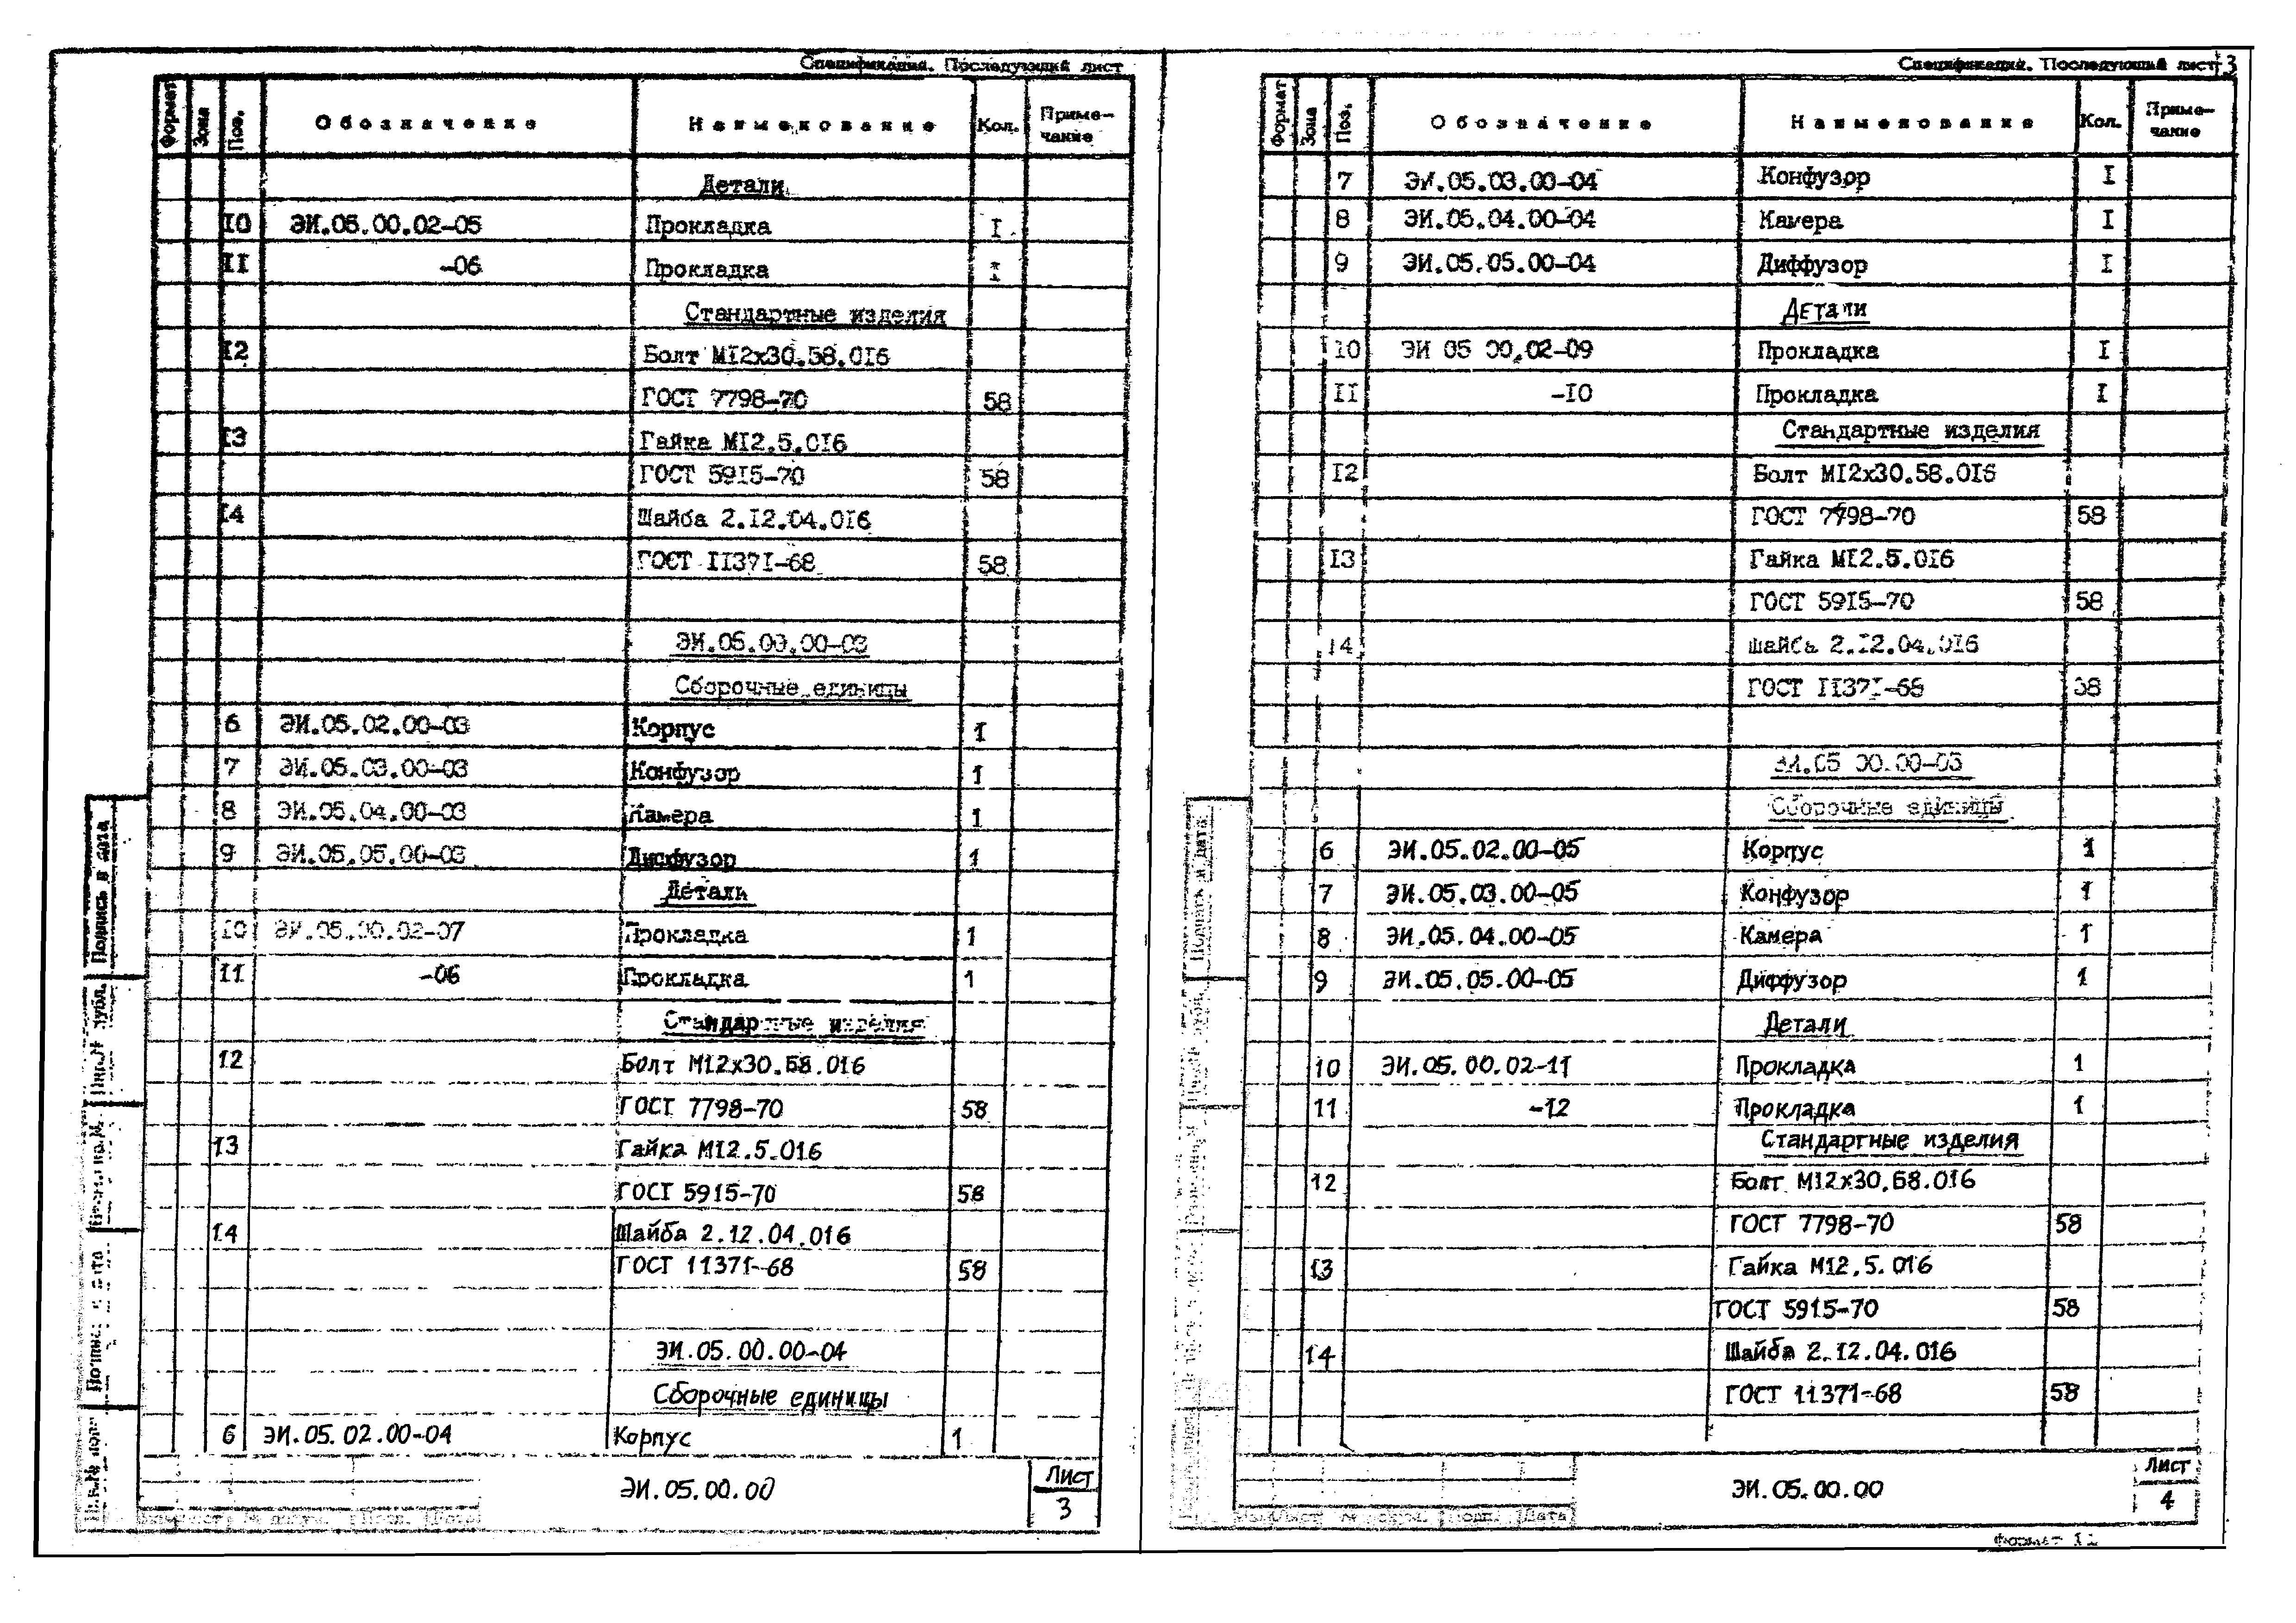 Спецификация. Последующий лист
Формат Зона Поз. Обозначение Наименование Кол. Приме-
чание
Детали
10 ЭИ.05.00.02-05 Прокладка I
II -06 Прокладка I
Стандартные изделия
12 Болт М12х30.58.016
ГОСТ 7798-70 58
13 Гайка М12.5.016
ГОСТ 5915-70 58
14 Шайба 2.12.04.016
ГОСТ 11371-68 58
ЭИ.05.00.00-03
Сборочные единицы
6 ЭИ.05.02.00-03 Корпус 1
7 ЭИ.05.03.00-03 Конфузор 1
8 ЭИ.05.04.00-03 Камера 1
9 ЭИ.05.05.00-03 Диффузор 1
Детали
10 ЭИ.05.00.02-07 Прокладка 1
11 -06 Прокладка 1
Стандартные изделия
12 Болт М12х30.58.016
ГОСТ 7798-70 58
13 Гайка М12.5.016
ГОСТ 5915-70 58
14 Шайба 2.12.04.016
ГОСТ 11371-68 58
ЭИ.05.00.00-04
Сборочные единицы
6 ЭИ.05.02.00-04 Корпус 1
ЭИ.05.00.00
Лист
3
Подпись и дата
Спецификация. Последующий лист 3
Формат Зона Поз. Обозначение Наименование Кол. Приме-
чание
7 ЭИ.05.03.00-04 Конфузор I
8 ЭИ.05.04.00-04 Камера I
9 ЭИ.05.05.00-04 Диффузор I
Детали
10 ЭИ 05 00.02-09 Прокладка I
II -10 Прокладка I
Стандартные изделия
12 Болт М12х30.58.016
ГОСТ 7798-70 58
13 Гайка М12.5.016
ГОСТ 5915-70 58
14 Шайба 2.12.04.016
ГОСТ 11371-68 58
ЭИ.05 00.00-03
Сборочные единицы
6 ЭИ.05.02.00-05 Корпус 1
7 ЭИ.05.03.00-05 Конфузор 1
8 ЭИ.05.04.00-05 Камера 1
9 ЭИ.05.05.00-05 Диффузор 1
Детали
10 ЭИ.05.00.02-11 Прокладка 1
11 -12 Прокладка 1
Стандартные изделия
12 Болт М12х30.58.016
ГОСТ 7798-70 58
13 Гайка М12.5.016
ГОСТ 5915-70 58
14 Шайба 2.12.04.016
ГОСТ 11371-68 58
ЭИ.05.00.00
Лист
4
Подпись и дата
Формат 12